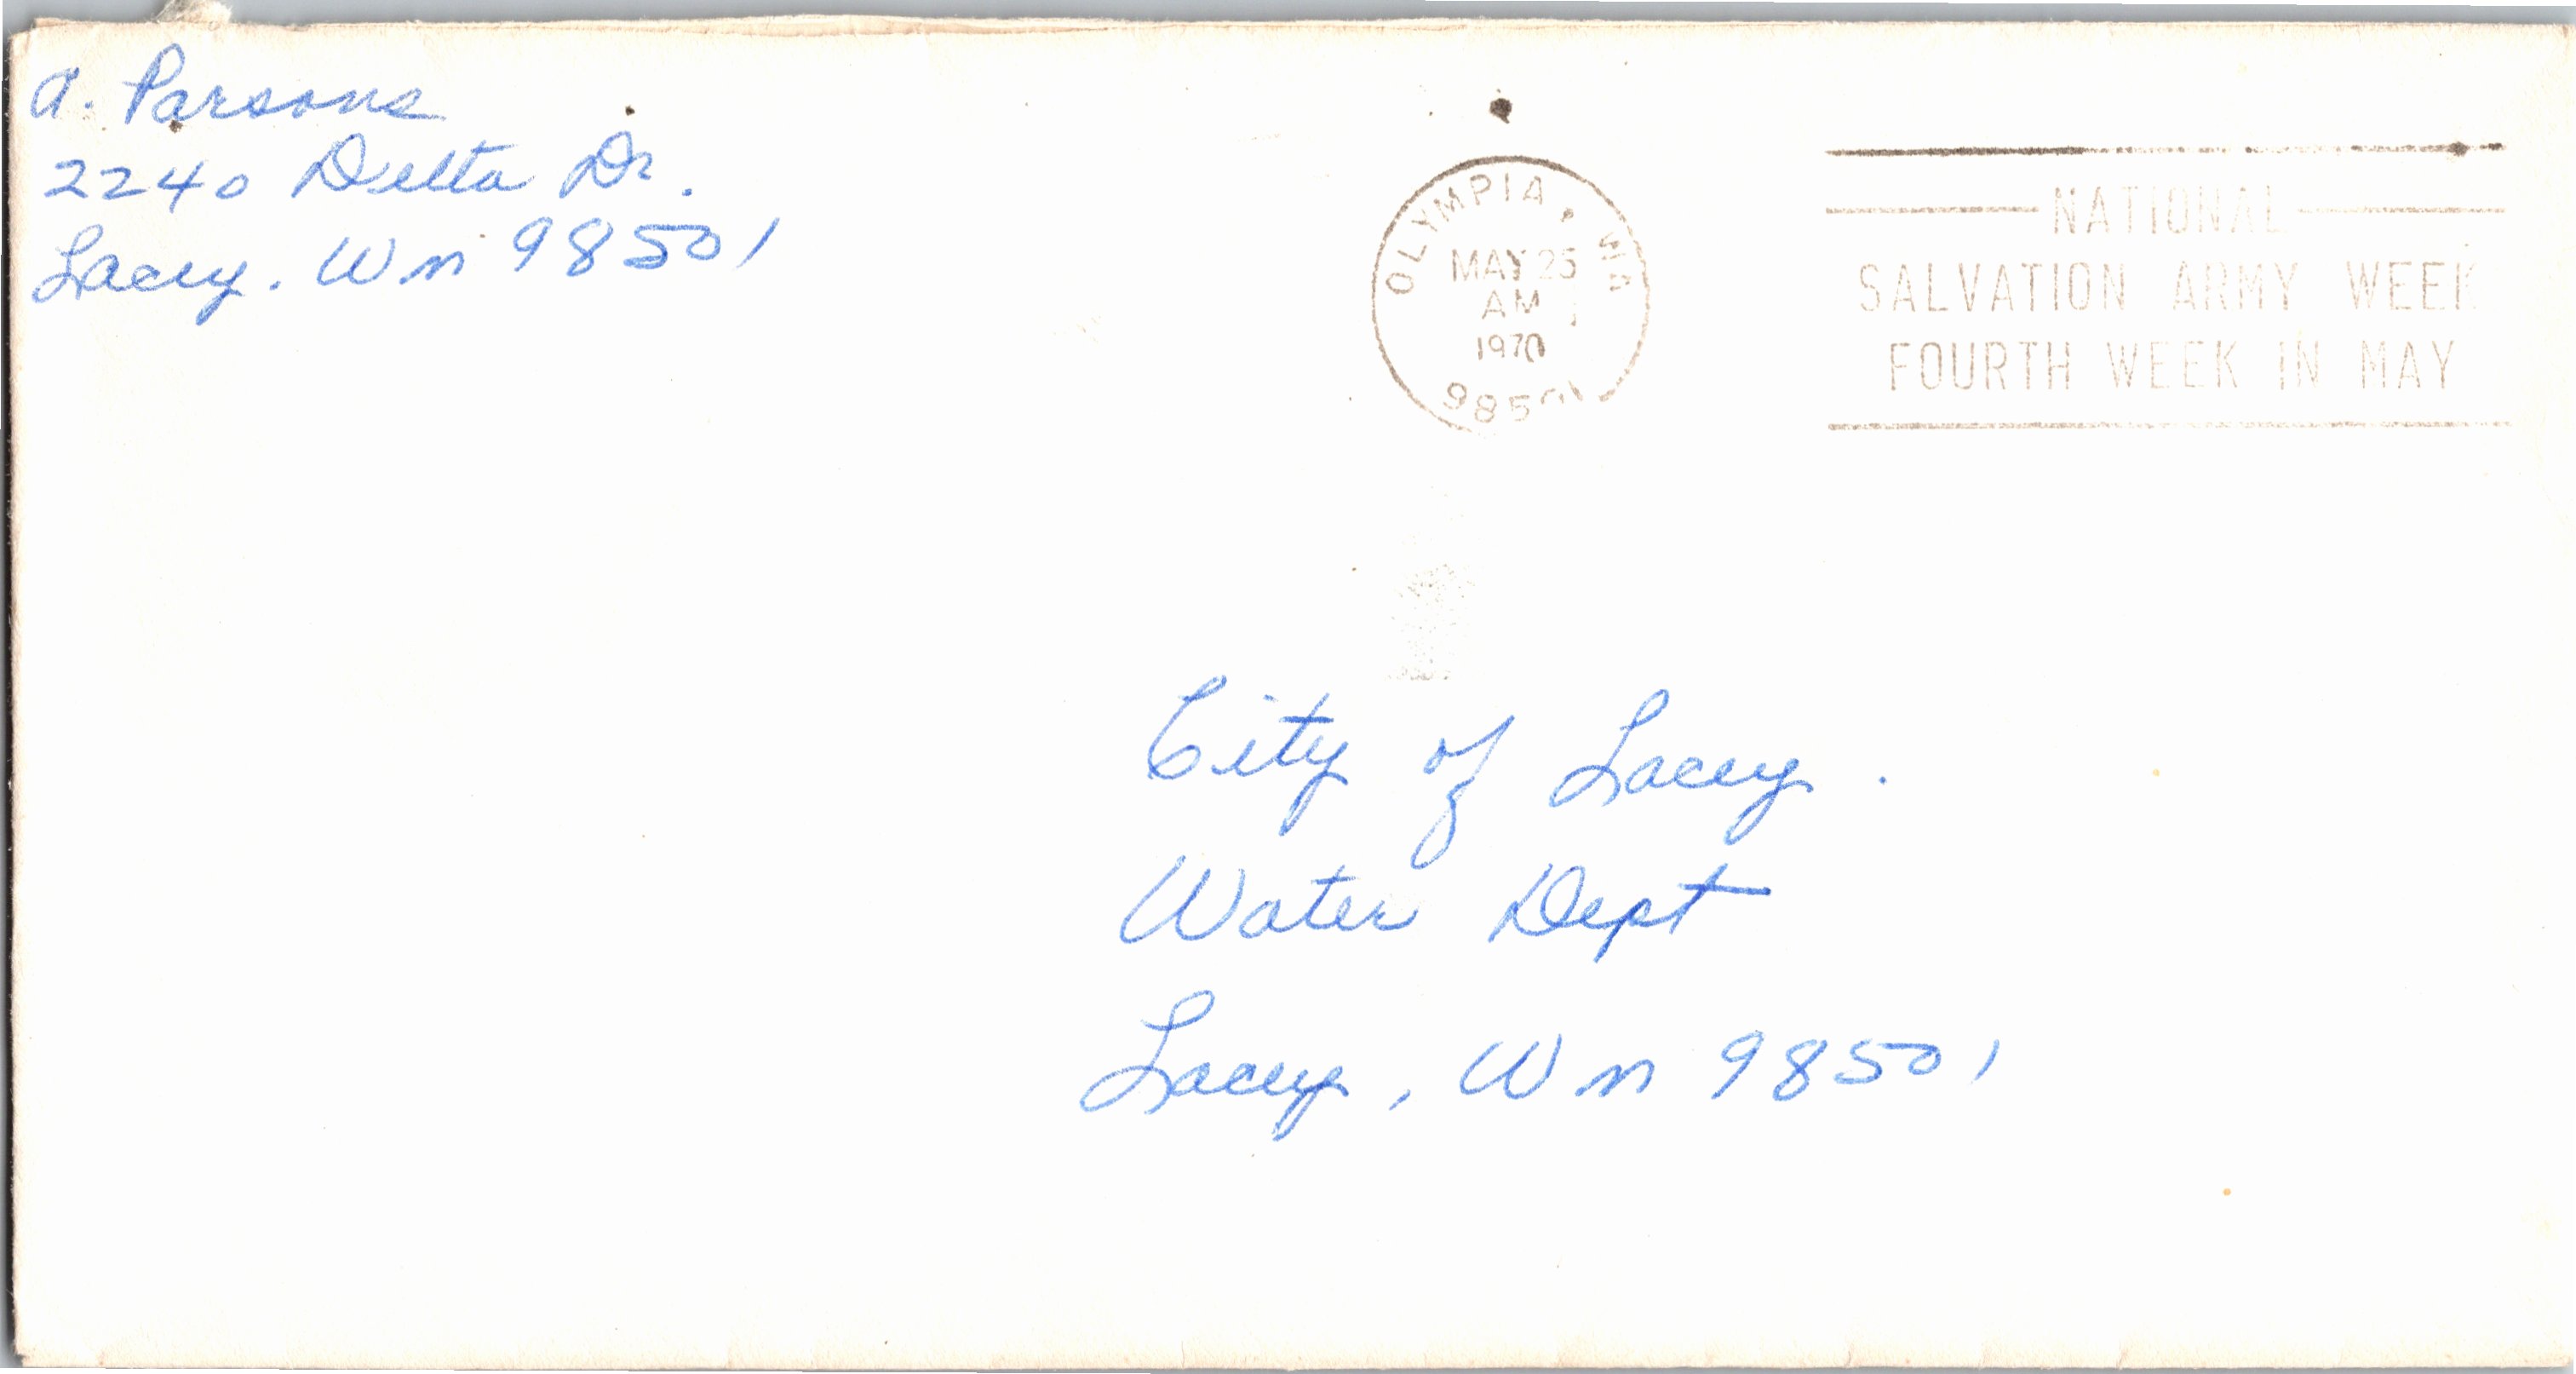 A. Parsons
2240 Delta Dr.
Lacey. Wn 98501
OLYMPIA, WA
MAY 25
AM
1970
98501
NATIONAL
SALVATION ARMY WEEK
FOURTH WEEK IN MAY
City of Lacey.
Water Dept
Lacey, Wn 98501